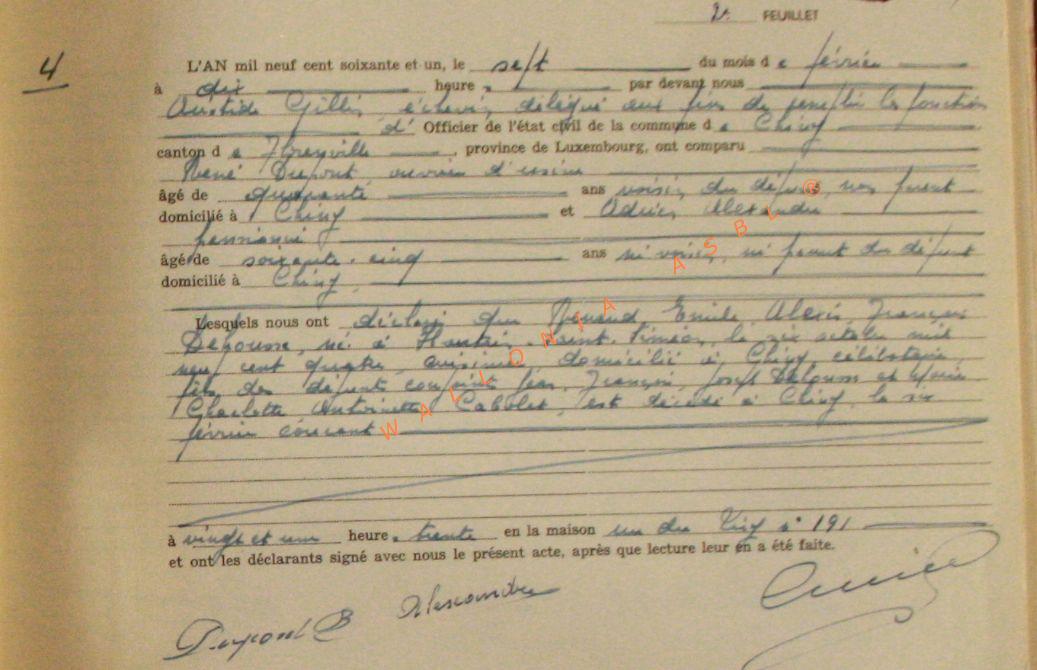 2e FEUILLET
4
L'AN mil neuf cent soixante et un, le sept du mois d e février
à dix heures par devant nous
Aristide Gillin, échevin, délégué aux fins de remplir les fonctions
d' Officier de l'état civil de la commune d e Chiny
canton d e Florenville, province de Luxembourg, ont comparu
René Dupont, ouvrier d'usine
âgé de quarante ans voisin du défunt, non parent
domicilié à Chiny et Adrien Alexandre
pensionné
âgé de soixante-cinq ans ni voisin, ni parent du défunt
domicilié à Chiny
Lesquels nous ont déclaré que Emile Alexis François
Delgousse, né à Hautain-Saint-Siméon, le six octobre mil
neuf cent quatre, cuisinier, domicilié à Chiny, célibataire
fils des défunts conjoints Jean, François, Joseph et Marie
Charlotte Antoinette Cabolet, est décédé à Chiny, le six
février courant
à vingt et une heures trente en la maison rue du n° 191
et ont les déclarants signé avec nous le présent acte, après que lecture leur en a été faite.
Dupont R Alexandre
WALLONIA ASBL ®